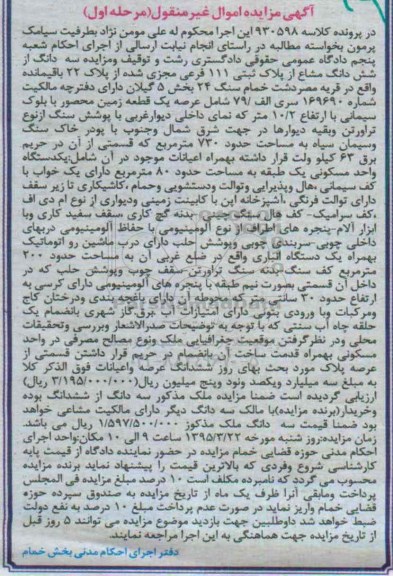 آگهی مزایده اموال غیر منقول(مرحله اول)
در پرونده کلاسه ۹۳۰۵۹۸ این اجرا محکوم له علی مومن نژاد بطرفیت سیامک
پرمون بخواسته مطالبه در راستای انجام نیابت ارسالی از اجرای احکام شعبه
پنجم دادگاه عمومی حقوقی دادگستری رشت و توقیف ومزایده سه دانگ از
شش دانگ مشاع از پلاک ثبتی ۱۱۱ فرعی مجزی شده از پلاک ۲۲ باقیمانده
واقع در قریه مصردشت خمام سنگ ۲۴ بخش ۵ گیلان دارای دفترچه مالکیت
شماره ۱۶۹۶۹۰ سری الف /۷۹ شامل عرصه یک قطعه زمین محصور با بلوک
سیمانی با ارتفاع ۱۰/۲ متر که نمای داخلی دیوارغربی با پوشش سنگ ازنوع
تراورتن وبقیه دیوارها در جهت شرق شمال وجنوب با پودر خاک سنگ
وسیمان سیاه به مساحت حدود ۷۳۰ مترمربع که قسمتی از آن در حریم
برق ۶۳ کیلو ولت قرار داشته بهمراه اعیانات موجود در آن شامل:یکدستگاه
واحد مسکونی یک طبقه به مساحت حدود ۸۰ مترمربع دارای یک خواب با
کف سیمانی ،هال وپذیرایی وتوالت ودستشویی وحمام ،کاشیکاری تا زیر سقف
دارای توالت فرنگی ،آشپزخانه اپن با کابینت زمینی ودیواری از نوع ام دی اف
،کف سرامیک- کف هال سنگ چینی- بدنه گچ کاری ،سقف سفید کاری وبا
ابزار آلام -پنجره های اطراف از نوع آلومینیومی با حفاظ آلومینیومی دربهای
داخلی چوبی –سربندی چوبی وپوشش حلب دارای درب ماشین رو اتوماتیک
بهمراه یک دستگاه انباری واقع در ضلع غربی آن به مساحت حدود ۲۰۰
مترمربع کف سنگ بدنه سنگ تراورتن سقف چوب وپوشش حلب که در
داخل آن قسمتی بصورت نیم طبقه با پنجره های آلومینیومی دارای کرسی به
ارتفاع حدود ۳۰ سانتی متر محوطه آن دارای باغچه بندی ودرختان کاج
ومرکبات وبا ورودی بتونی دارای امتیازات آب ،برق،گاز شهری بانضمام یک
حلقه چاه آب سنتی که با توجه به توضیحات صدرالاشعار وبررسی وتحقیقات
محلی ودر نظرگرفتن موقعیت جغرافیایی ملک ونوع مصالح مصرفی در واحد
مسکونی بهمراه قدمت ساخت آن بانضمام در حریم قرار داشتن قسمتی از
عرصه پلاک مورد بحث بهای روز ششدانگ عرصه واعیانات فوق الذکر کلا
به مبلغ سه میلیارد ویکصد ونود وپنج میلیون ریال(۳/۱۹۵/۰۰۰/۰۰۰ ریال)
ارزیابی گردیده است ضمنا مزایده ملک مذکور سه دانگ از ششدانگ بوده
وخریدار(برنده مزایده)با مالک سه دانگ دیگر دارای مالکیت مشاعی خواهد
بود ضمنا قیمت سه دانگ ملک مذکور ۱/۵۹۷/۵۰۰/۰۰۰ ریال می باشد.
زمان مزایده:روز شنبه مورخه ۱۳۹۵/۳/۲۲ ساعت ۹ الی ۱۰ مکان:واحد اجرای
احکام مدنی حوزه قضایی خمام مزایده در حضور نماینده دادگاه از قیمت پایه
کارشناسی شروع وفردی که بالاترین قیمت را پیشنهاد نماید برنده مزایده
محسوب می گردد که نامبرده مکلف است ۱۰ درصد مبلغ مزایده فی المجلس
پرداخت ومابقی آنرا ظرف یک ماه از تاریخ مزایده به صندوق سپرده حوزه
قضایی خمام واریز نماید در صورت عدم پرداخت مبلغ ۱۰ درصد به نفع دولت
ضبط خواهد شد داوطلبین جهت بازدید موضوع مزایده می توانند ۵ روز قبل
از تاریخ مزایده جهت هماهنگی به این اجرا مراجعه نمایند.
دفتر اجرای احکام مدنی بخش خمام